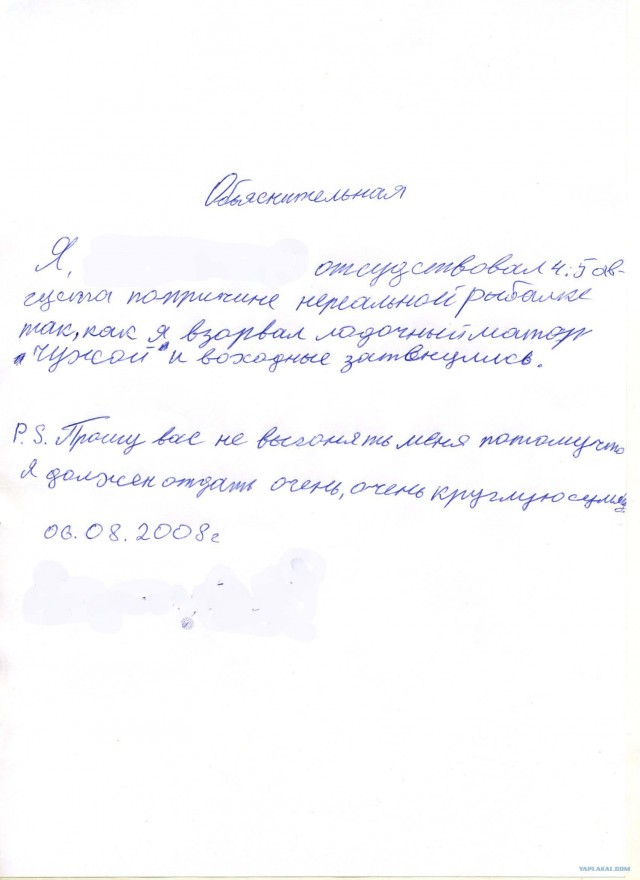 Объяснительная
Я, отсудствовал 4:5 ав-
густа попричине нереальной рыбалке
так, как я взорвал лодочный матор
"Чужой" и воходные затянулись.
P.S. Прошу вас не выгонять меня потомучто
я должен отдать очень, очень круглую сумму
06.08.2008г
YAPLAKAL.COM